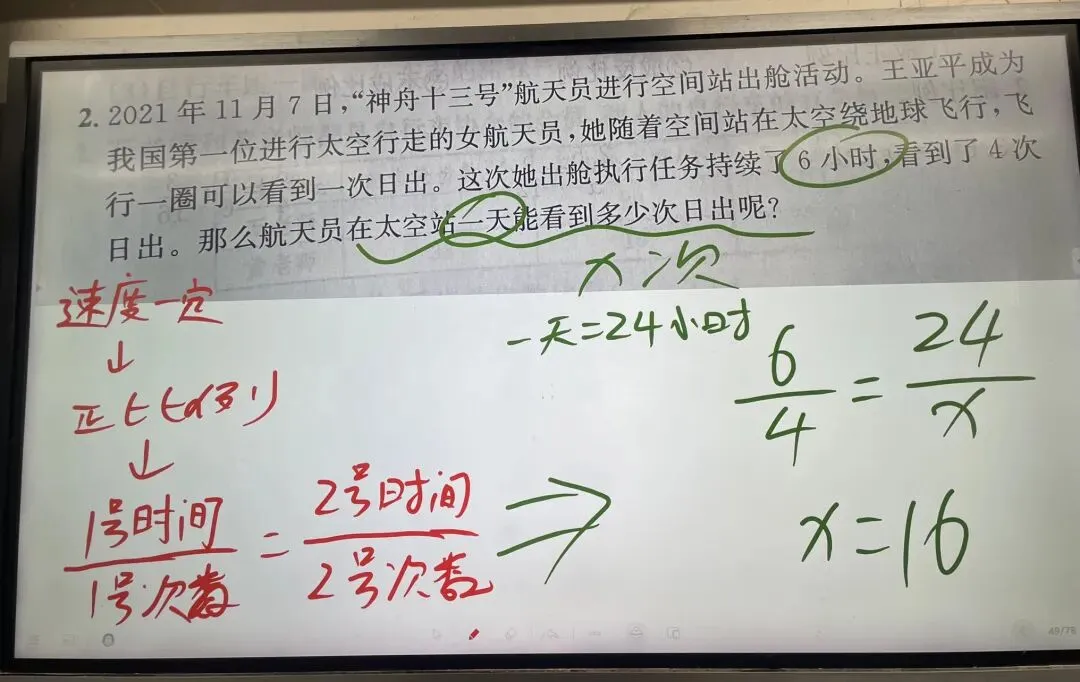 2. 2021 年 11 月 7 日,“神舟十三号”航天员进行空间站出舱活动。王亚平成为
我国第一位进行太空行走的女航天员,她随着空间站在太空绕地球飞行,飞
行一圈可以看到一次日出。这次她出舱执行任务持续了 6 小时,看到了 4 次
日出。那么航天员在太空站一天能看到多少次日出呢?
x 次
一天=24小时
速度一定
↓
正比例
↓
1号时间/1号次数 = 2号时间/2号次数 ⇒
6/4 = 24/x
x=16
49/78